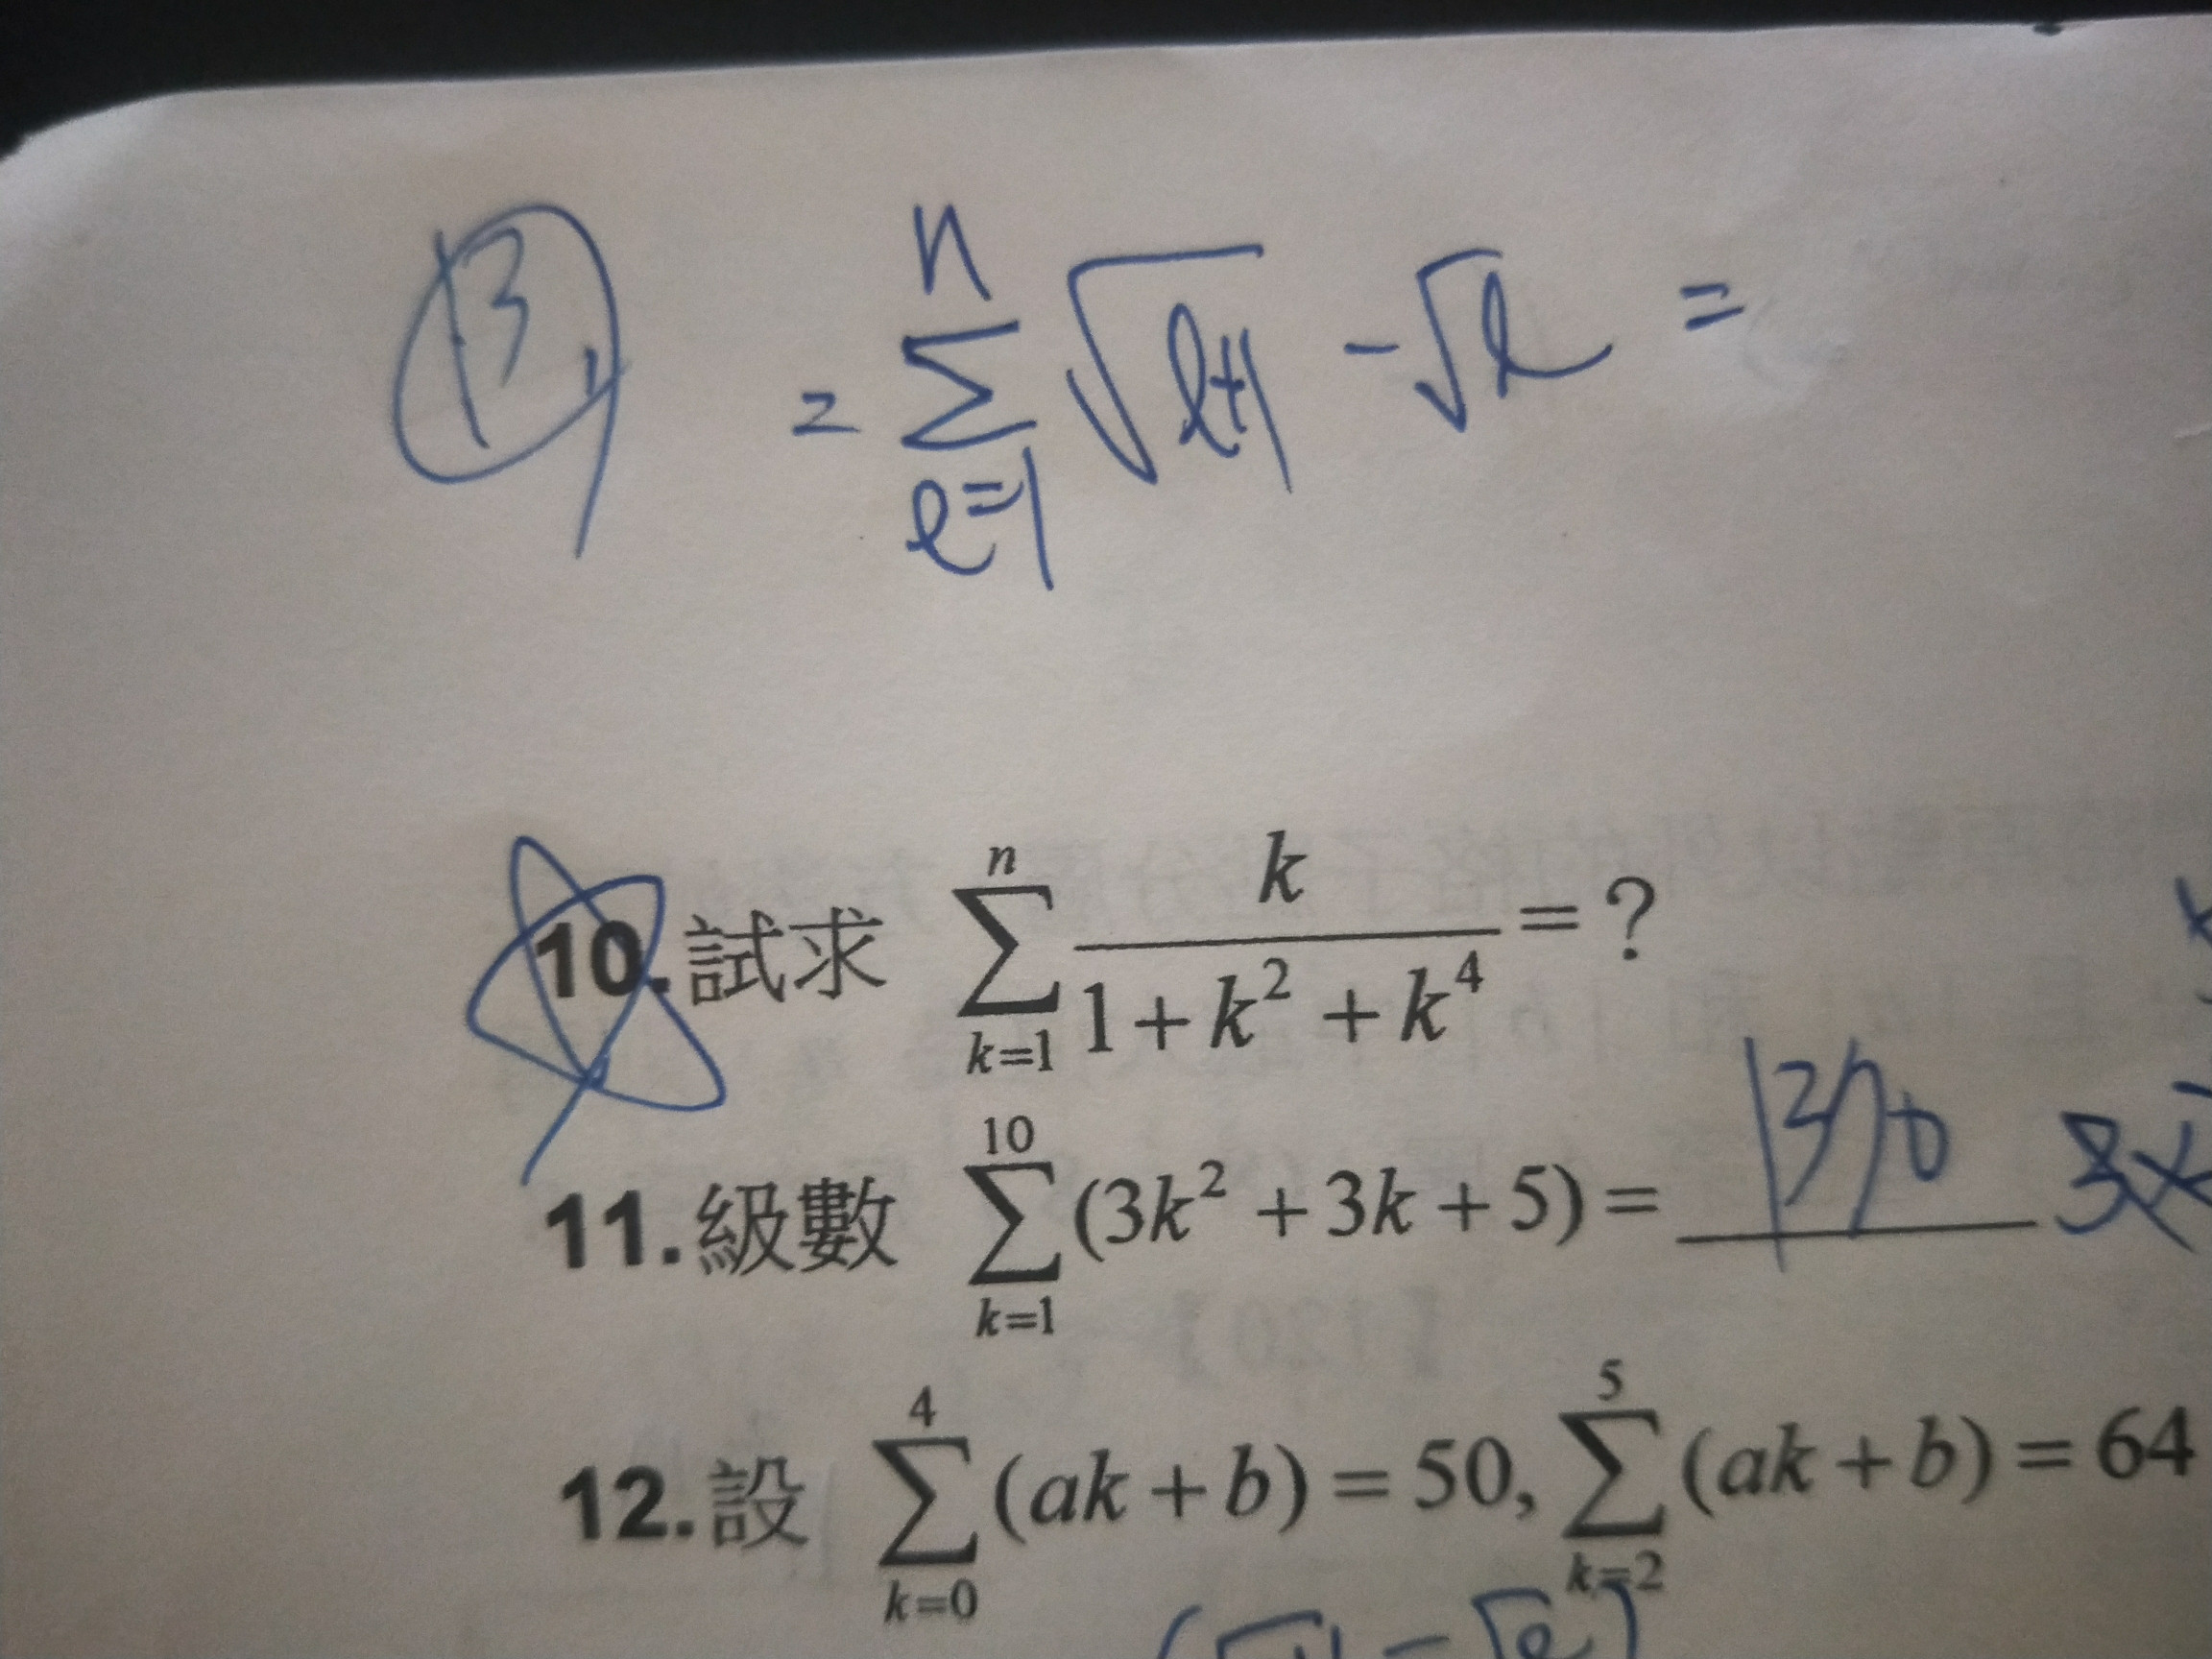 13. = \sum_{l=1}^{n} \sqrt{l+1} - \sqrt{l} =
10. 試求 \sum_{k=1}^{n} \frac{k}{1+k^2+k^4} = ?
11. 級數 \sum_{k=1}^{10} (3k^2+3k+5) = 1370
12. 設 \sum_{k=0}^{4} (ak+b) = 50, \sum_{k=2}^{5} (ak+b) = 64